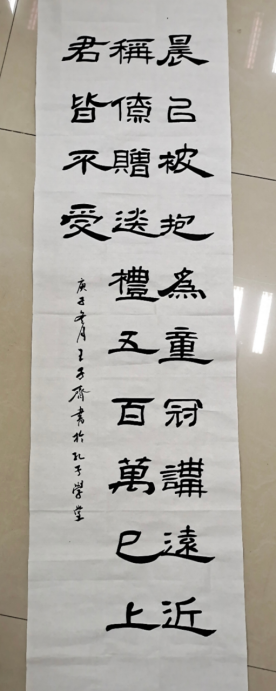 晨已被抱為童冠講遠近
稱僚贈送禮五百萬已上
君皆不受
庚子冬月王子齊書於孔子學堂